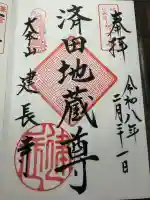 奉拝
令和八年二月二十一日
済田地蔵尊
大本山
建長寺